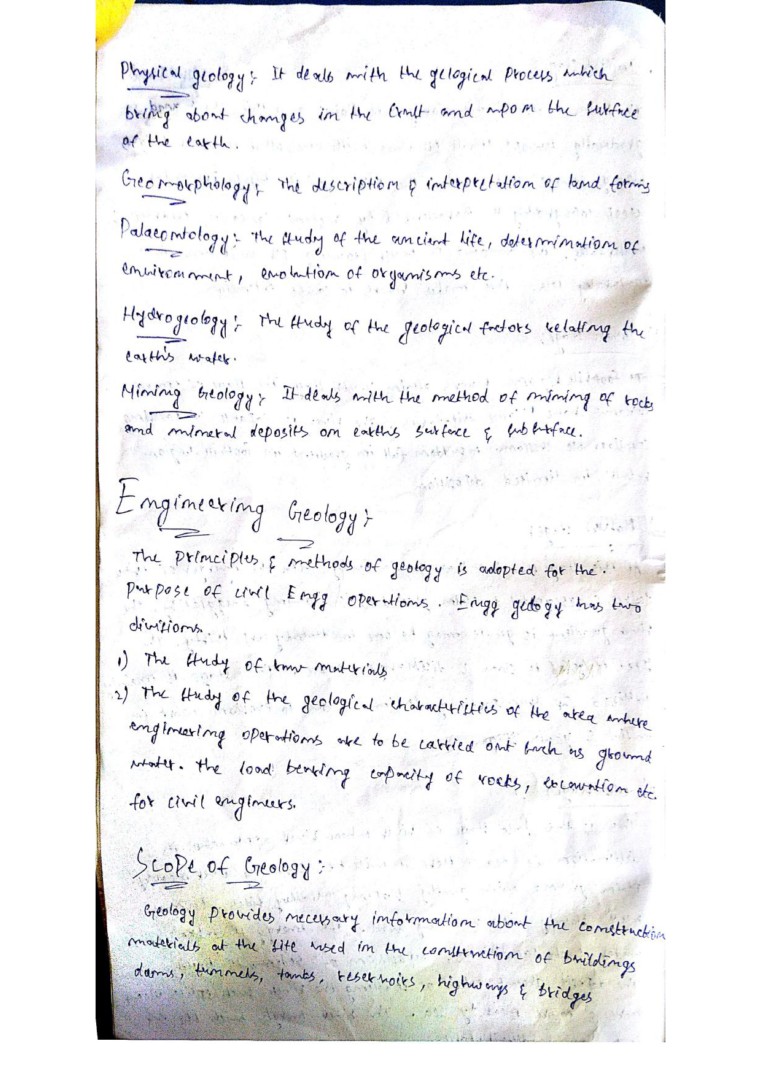 Physical geology:- It deals with the gelogical process which
bring about changes in the crust and upon the surface
of the earth.
Geomorphology:- The description & interpretation of land forms
Palaeontology:- The study of the ancient life, determination of
environment, evolution of organisms etc.
Hydrogeology:- The study of the geological factors relating the
earth's water.
Mining Geology:- It deals with the method of mining of rocks
and mineral deposits on earth's surface & subsurface.
Engineering Geology:-
The principles & methods of geology is adopted for the
purpose of civil Engg operations. Engg geology has two
divisions.
1) The study of raw materials
2) The study of the geological characteristics of the area where
engineering operations are to be carried out such as ground
water. The load bearing capacity of rocks, excavation etc.
for civil engineers.
Scope of Geology:-
Geology provides necessary information about the construction
materials at the site used in the construction of buildings
dams, tunnels, tanks, reservoirs, highways & bridges